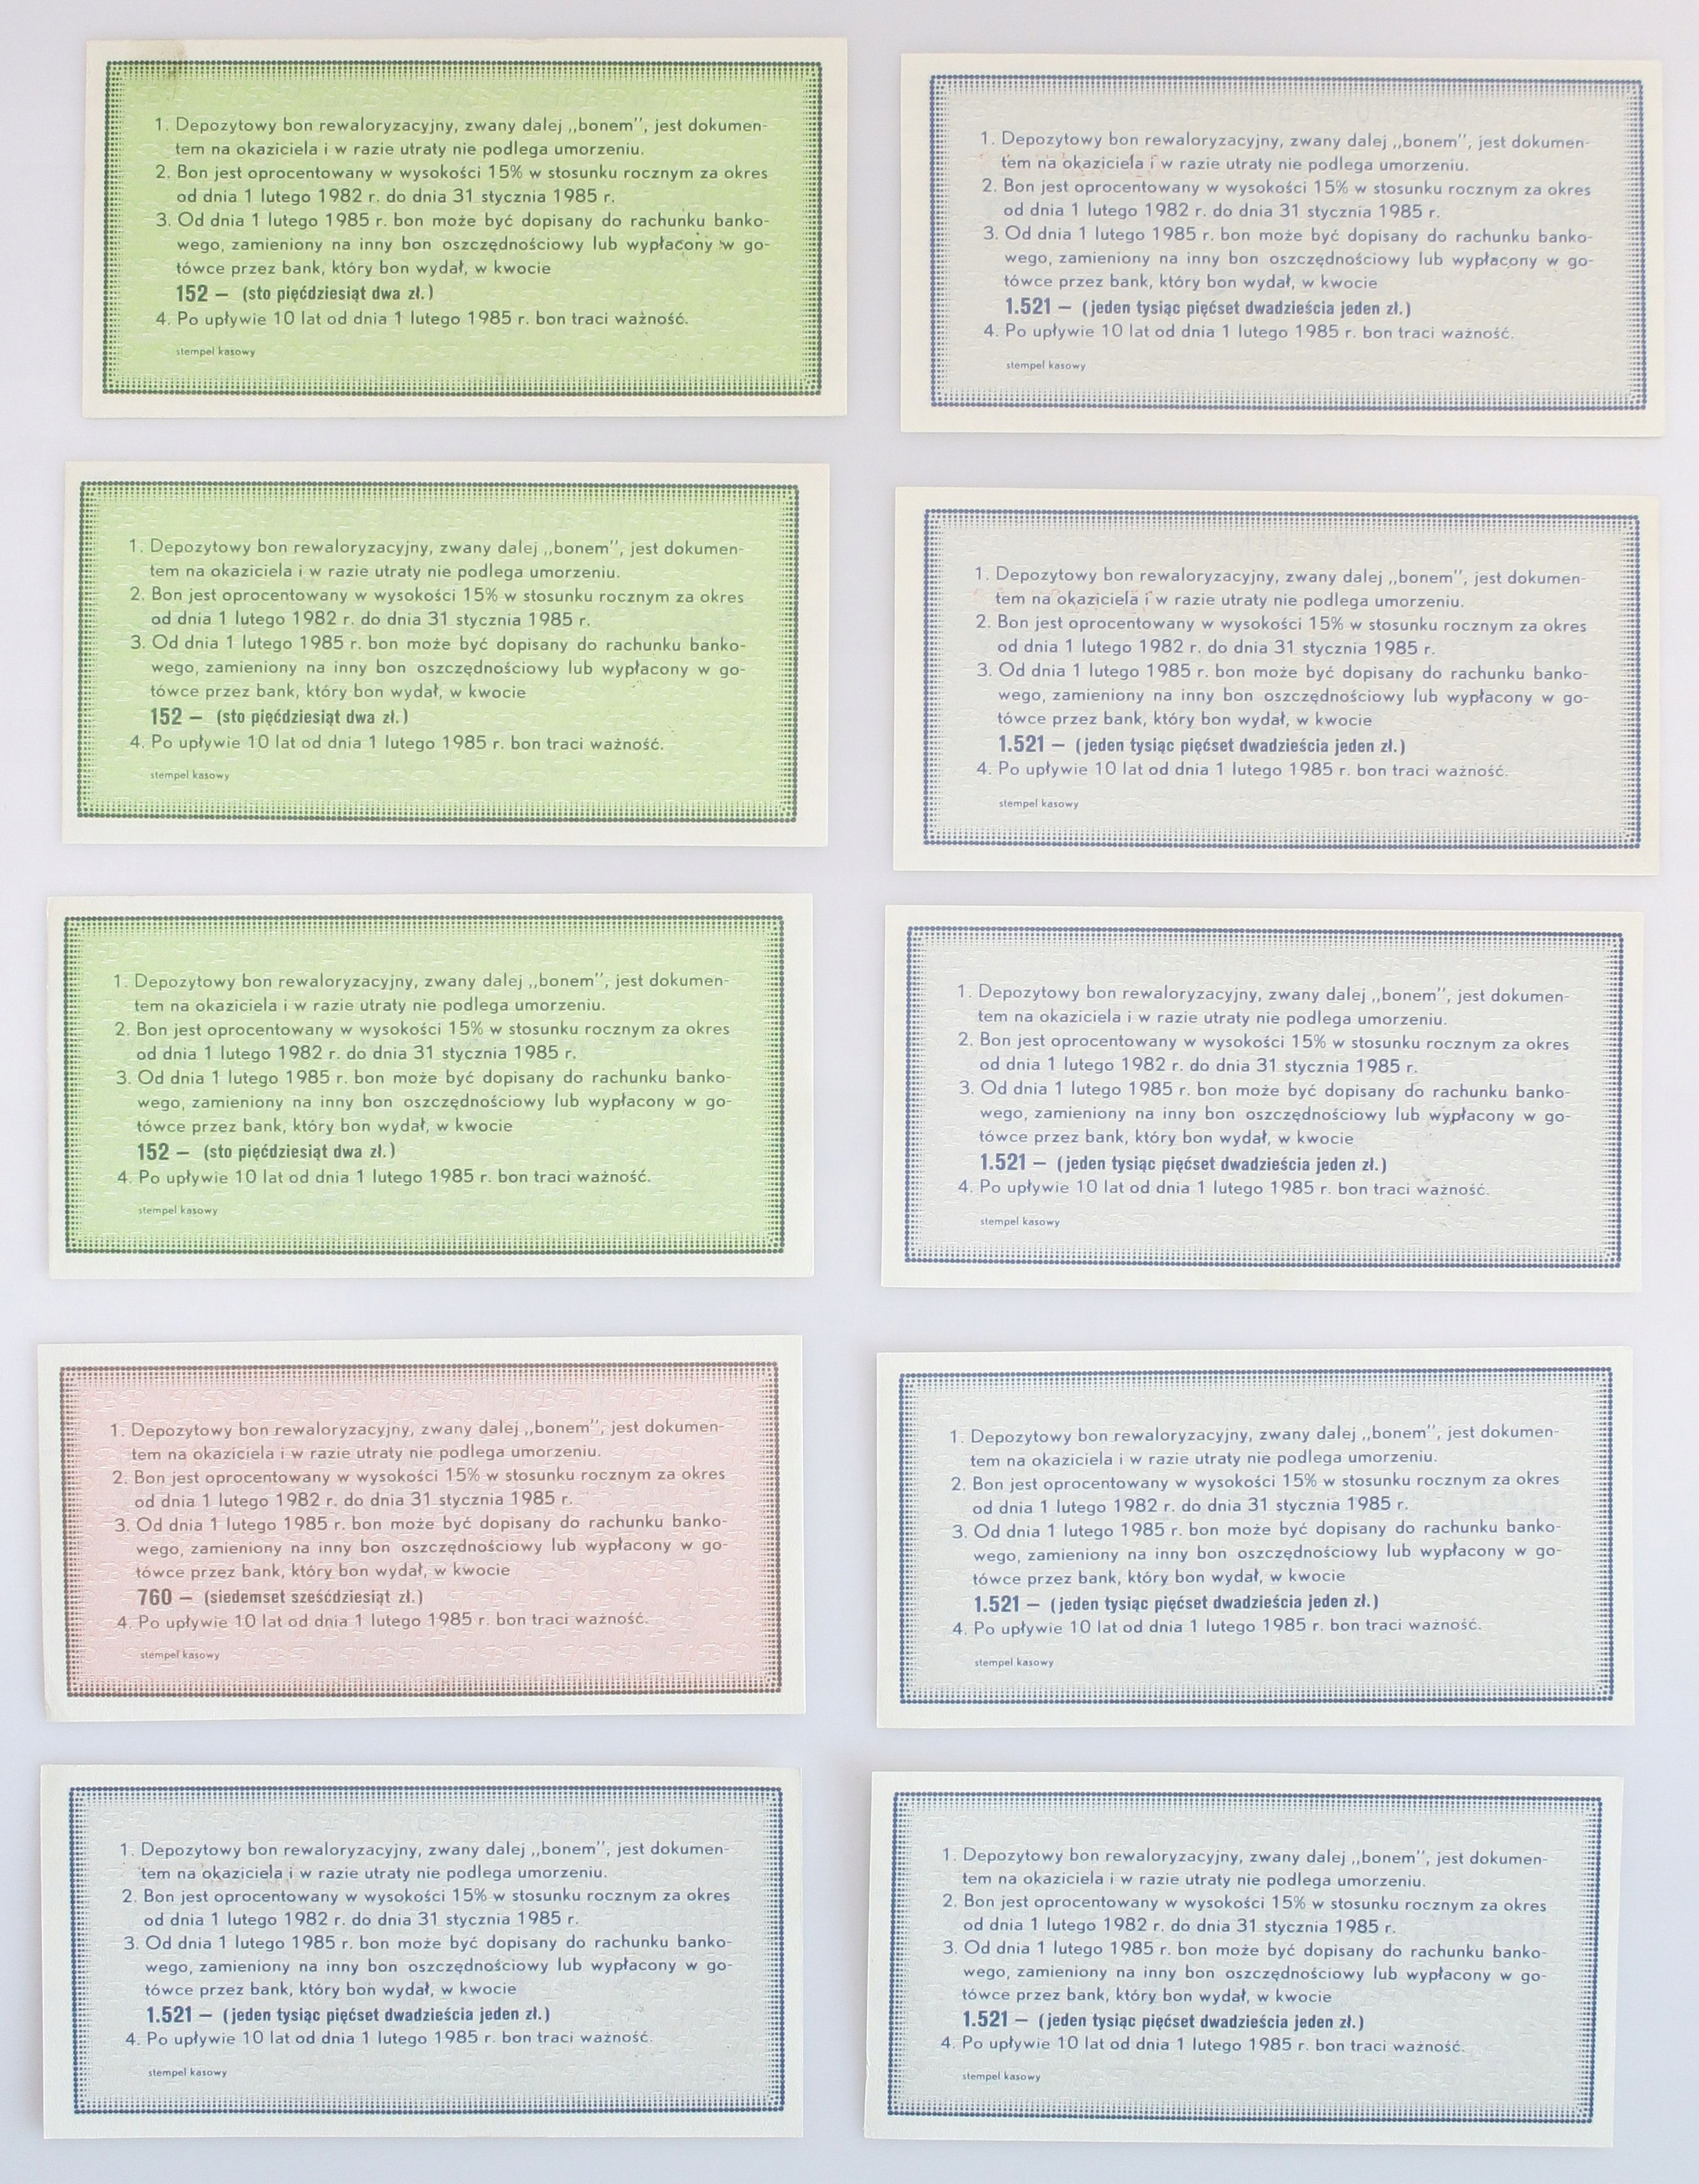 1. Depozytowy bon rewaloryzacyjny, zwany dalej ,,bonem", jest dokumen-
tem na okaziciela i w razie utraty nie podlega umorzeniu.
2. Bon jest oprocentowany w wysokości 15% w stosunku rocznym za okres
od dnia 1 lutego 1982 r. do dnia 31 stycznia 1985 r.
3. Od dnia 1 lutego 1985 r. bon może być dopisany do rachunku banko-
wego, zamieniony na inny bon oszczędnościowy lub wypłacony w go-
tówce przez bank, który bon wydał, w kwocie
152 — (sto pięćdziesiąt dwa zł.)
4. Po upływie 10 lat od dnia 1 lutego 1985 r. bon traci ważność.
stempel kasowy
1. Depozytowy bon rewaloryzacyjny, zwany dalej ,,bonem", jest dokumen-
tem na okaziciela i w razie utraty nie podlega umorzeniu.
2. Bon jest oprocentowany w wysokości 15% w stosunku rocznym za okres
od dnia 1 lutego 1982 r. do dnia 31 stycznia 1985 r.
3. Od dnia 1 lutego 1985 r. bon może być dopisany do rachunku banko-
wego, zamieniony na inny bon oszczędnościowy lub wypłacony w go-
tówce przez bank, który bon wydał, w kwocie
1.521 — (jeden tysiąc pięćset dwadzieścia jeden zł.)
4. Po upływie 10 lat od dnia 1 lutego 1985 r. bon traci ważność.
stempel kasowy
1. Depozytowy bon rewaloryzacyjny, zwany dalej ,,bonem", jest dokumen-
tem na okaziciela i w razie utraty nie podlega umorzeniu.
2. Bon jest oprocentowany w wysokości 15% w stosunku rocznym za okres
od dnia 1 lutego 1982 r. do dnia 31 stycznia 1985 r.
3. Od dnia 1 lutego 1985 r. bon może być dopisany do rachunku banko-
wego, zamieniony na inny bon oszczędnościowy lub wypłacony w go-
tówce przez bank, który bon wydał, w kwocie
152 — (sto pięćdziesiąt dwa zł.)
4. Po upływie 10 lat od dnia 1 lutego 1985 r. bon traci ważność.
stempel kasowy
1. Depozytowy bon rewaloryzacyjny, zwany dalej ,,bonem", jest dokumen-
tem na okaziciela i w razie utraty nie podlega umorzeniu.
2. Bon jest oprocentowany w wysokości 15% w stosunku rocznym za okres
od dnia 1 lutego 1982 r. do dnia 31 stycznia 1985 r.
3. Od dnia 1 lutego 1985 r. bon może być dopisany do rachunku banko-
wego, zamieniony na inny bon oszczędnościowy lub wypłacony w go-
tówce przez bank, który bon wydał, w kwocie
1.521 — (jeden tysiąc pięćset dwadzieścia jeden zł.)
4. Po upływie 10 lat od dnia 1 lutego 1985 r. bon traci ważność.
stempel kasowy
1. Depozytowy bon rewaloryzacyjny, zwany dalej ,,bonem", jest dokumen-
tem na okaziciela i w razie utraty nie podlega umorzeniu.
2. Bon jest oprocentowany w wysokości 15% w stosunku rocznym za okres
od dnia 1 lutego 1982 r. do dnia 31 stycznia 1985 r.
3. Od dnia 1 lutego 1985 r. bon może być dopisany do rachunku banko-
wego, zamieniony na inny bon oszczędnościowy lub wypłacony w go-
tówce przez bank, który bon wydał, w kwocie
152 — (sto pięćdziesiąt dwa zł.)
4. Po upływie 10 lat od dnia 1 lutego 1985 r. bon traci ważność.
stempel kasowy
1. Depozytowy bon rewaloryzacyjny, zwany dalej ,,bonem", jest dokumen-
tem na okaziciela i w razie utraty nie podlega umorzeniu.
2. Bon jest oprocentowany w wysokości 15% w stosunku rocznym za okres
od dnia 1 lutego 1982 r. do dnia 31 stycznia 1985 r.
3. Od dnia 1 lutego 1985 r. bon może być dopisany do rachunku banko-
wego, zamieniony na inny bon oszczędnościowy lub wypłacony w go-
tówce przez bank, który bon wydał, w kwocie
1.521 — (jeden tysiąc pięćset dwadzieścia jeden zł.)
4. Po upływie 10 lat od dnia 1 lutego 1985 r. bon traci ważność.
stempel kasowy
1. Depozytowy bon rewaloryzacyjny, zwany dalej ,,bonem", jest dokumen-
tem na okaziciela i w razie utraty nie podlega umorzeniu.
2. Bon jest oprocentowany w wysokości 15% w stosunku rocznym za okres
od dnia 1 lutego 1982 r. do dnia 31 stycznia 1985 r.
3. Od dnia 1 lutego 1985 r. bon może być dopisany do rachunku banko-
wego, zamieniony na inny bon oszczędnościowy lub wypłacony w go-
tówce przez bank, który bon wydał, w kwocie
760 — (siedemset sześćdziesiąt zł.)
4. Po upływie 10 lat od dnia 1 lutego 1985 r. bon traci ważność.
stempel kasowy
1. Depozytowy bon rewaloryzacyjny, zwany dalej ,,bonem", jest dokumen-
tem na okaziciela i w razie utraty nie podlega umorzeniu.
2. Bon jest oprocentowany w wysokości 15% w stosunku rocznym za okres
od dnia 1 lutego 1982 r. do dnia 31 stycznia 1985 r.
3. Od dnia 1 lutego 1985 r. bon może być dopisany do rachunku banko-
wego, zamieniony na inny bon oszczędnościowy lub wypłacony w go-
tówce przez bank, który bon wydał, w kwocie
1.521 — (jeden tysiąc pięćset dwadzieścia jeden zł.)
4. Po upływie 10 lat od dnia 1 lutego 1985 r. bon traci ważność.
stempel kasowy
1. Depozytowy bon rewaloryzacyjny, zwany dalej ,,bonem", jest dokumen-
tem na okaziciela i w razie utraty nie podlega umorzeniu.
2. Bon jest oprocentowany w wysokości 15% w stosunku rocznym za okres
od dnia 1 lutego 1982 r. do dnia 31 stycznia 1985 r.
3. Od dnia 1 lutego 1985 r. bon może być dopisany do rachunku banko-
wego, zamieniony na inny bon oszczędnościowy lub wypłacony w go-
tówce przez bank, który bon wydał, w kwocie
1.521 — (jeden tysiąc pięćset dwadzieścia jeden zł.)
4. Po upływie 10 lat od dnia 1 lutego 1985 r. bon traci ważność.
stempel kasowy
1. Depozytowy bon rewaloryzacyjny, zwany dalej ,,bonem", jest dokumen-
tem na okaziciela i w razie utraty nie podlega umorzeniu.
2. Bon jest oprocentowany w wysokości 15% w stosunku rocznym za okres
od dnia 1 lutego 1982 r. do dnia 31 stycznia 1985 r.
3. Od dnia 1 lutego 1985 r. bon może być dopisany do rachunku banko-
wego, zamieniony na inny bon oszczędnościowy lub wypłacony w go-
tówce przez bank, który bon wydał, w kwocie
1.521 — (jeden tysiąc pięćset dwadzieścia jeden zł.)
4. Po upływie 10 lat od dnia 1 lutego 1985 r. bon traci ważność.
stempel kasowy